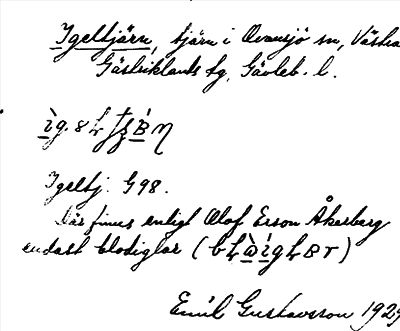 Igeltjärn, tjärn i Ovansjö sn, Västra
Gästriklands tg, Gävleb. l.
Igeltj. G98.
Där finns enligt Olof Ersson Åkerberg
endast blodiglar (
Emil Gustavsson 1929